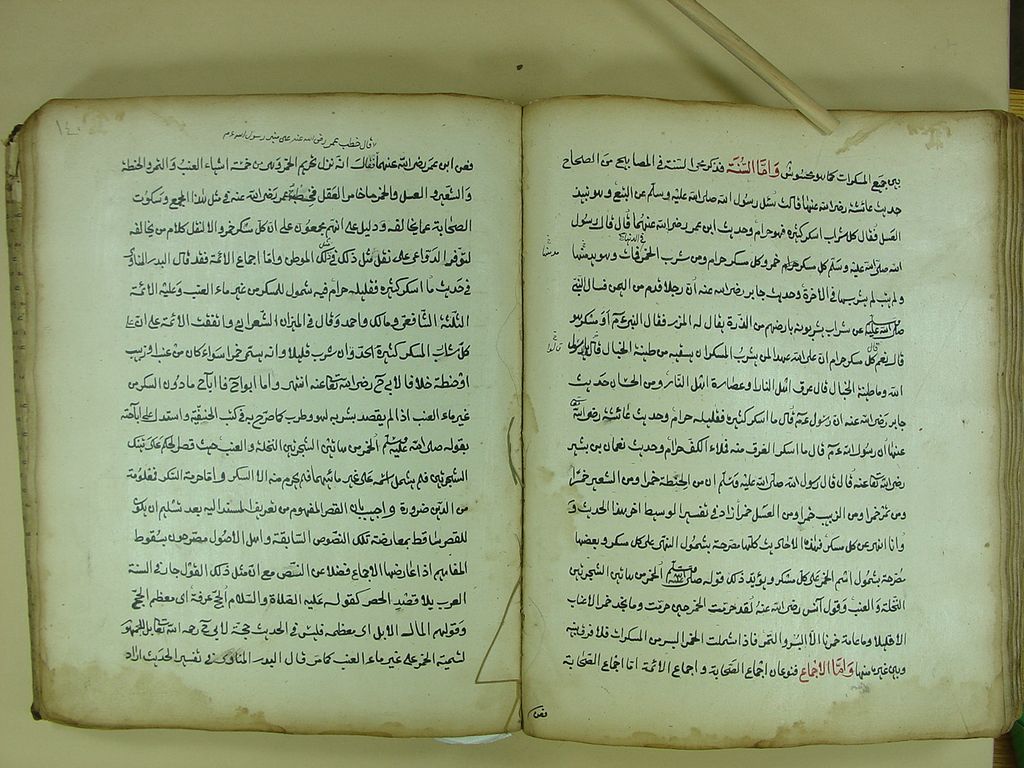 بين جميع المسكرات كما هو محسوس وَامّا السُنّة فذكر محيى السنة في المصابيح من الصحاح
حديث عائشة رضى الله عنها قالت سئل رسول الله صلى الله عليه وسلم عن البتع وهو نبيذ
العسل فقال كل شراب اسكر كثيره فهو حرام وحديث ابن عمر رضى الله عنهما قال قال رسول
الله صلى الله عليه وسلم كل مسكر خمر وكل مسكر حرام ومن شرب الخمر في الدنيا فمات وهو يدمنها
ولم يتب لم يشربها في الاخرة وحديث جابر رضى الله عنه ان رجلا قدم من اليمن فسال النبي
صلى الله عليه عن شراب يشربونه بارضهم من الذرة يقال له المزر فقال النبي عم أو مسكر هو
قال نعم قال كل مسكر حرام ان على الله عهدا لمن يشرب المسكر ان يسقيه من طينة الخبال قالوا يا رسول
الله وما طينة الخبال قال عرق اهل النار او عصارة اهل النار ومن الحسان حديث
جابر رضى الله عنه ان رسول عم قال ما اسكر كثيره فقليله حرام وحديث عائشة رضى الله
عنها ان رسول الله عم قال ما اسكر الفرق منه فملاء الكف حرام وحديث نعمان بن بشير
رضى الله تعالى عنه قال قال رسول الله صلى الله عليه وسلم ان من الحنطة خمرا ومن الشعير خمرا
ومن تمر خمرا ومن الزبيب خمرا ومن العسل خمرا زاد في تفسير الوسيط اخر هذا الحديث و
وانا انهى عن كل مسكر فهذه الاحاديث كلها مصرحة بشمول النهى على كل مسكر وبعضها
مصرحة بشمول اسم الخمر على كل مسكر ويؤيد ذلك قوله صلى الله عليه وسلم الخمر من هاتين الشجرتين
النخلة والعنب وقول أنس رضى الله عنه لقد حرمت الخمر حين حرمت وما نجد خمر الاعناب
الا قليلا وعامة خمرنا الا البسر والتمر فاذا اشملت الخمر البسر من المسكرات فلا فرق بينه
وبين غيره منها وَامّا الاجماع فنوعان اجماع الصحابة واجماع الائمة امّا اجماع الصحابة
فعن
قال خطب عمر رضى الله عنه على منبر رسول الله عم
فعن ابن عمر رضى الله عنهما فقال انه نزل تحريم الخمر وهي من خمسة اشياء العنب والتمر والحنطة
والشعير والعسل والخمر ما خامر العقل فخطبة عمر رضى الله عنه في مثل هذا المجمع وسكوت
الصحابة عما يخالفه دليل على انهم مجمعون على ان كل مسكر خمر والا لنقل كلام من يخالفه
لتوفر الدواعى على نقل مثل ذلك في مثل ذلك الموطن وامّا اجماع الائمة فقد قال البدر المناوى
في حديث ما اسكر كثيره فقليله حرام فيه شمول للمسكر من غير ماء العنب وعليه الائمة
الثلثة الشافعى ومالك واحمد وقال في الميزان الشعرانى واتفقت الائمة على ان
كل شراب المسكر كثيره يحد وان شرب قليلا وانه يسمى خمرا سواء كان من عنب او زبيب
او حنطة خلافا لابى ح رضى الله تعالى عنه انتهى وامّا ابو ح فاباح مادون السكر من
غير ماء العنب اذا لم يقصد بشربه لهو وطرب كما صرح به في كتب الحنفية واستدل على اباحته
بقوله صلى الله عليه وسلم الخمر من هاتين الشجرتين النخلة والعنب حيث قصر الحكم على تينك
الشجرتين فلم يشمل اسمه على غير مائتيهما فلم يحرم منه الا السكر وامّا حرمة السكر فمعلومة
من الدين ضرورة واجيب بان القصر المفهوم من تعريف المسند اليه بعد تسليم ان يكون
للقصر ساقط بمعارضة تلك النصوص السابقة واهل الاصول مصرحون بسقوط
المفاهيم اذا عارضها الاجماع فضلا عن النص مع ان مثل ذلك القول جار في السنة
العرب بلا قصد الحصر كقوله عليه الصلاة والسلام الحج عرفة اى معظم الحج
وقولهم المال الابل اى معظمه فليس في الحديث حجة لابى ح رحمه الله المقابل للجمهور
لتسمية الخمر على غير ماء العنب كما مر قال البدر المناوى في تفسير الحديث اراد